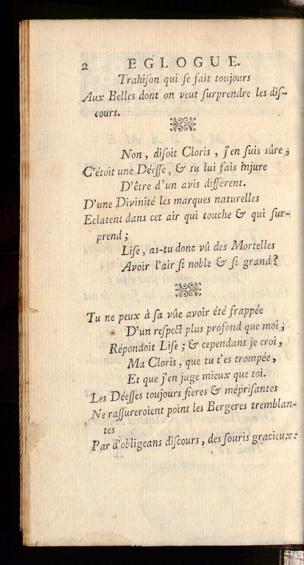 2 EGLOGUE.
Trahison qui se fait toujours
Aux Belles dont on veut surprendre les dis-
cours.
Non, disoit Cloris, j'en suis sûre;
C'étoit une Déesse, & tu lui fais injure
D'être d'un avis different.
D'une Divinité les marques naturelles
Eclatent dans cet air qui touche & qui sur-
prend;
Lise, as-tu donc vû des Mortelles
Avoir l'air si noble & si grand?
Tu ne peux à sa vûe avoir été frappée
D'un respect plus profond que moi,
Répondoit Lise; & cependant je croi,
Ma Cloris, que tu t'es trompée,
Et que j'en juge mieux que toi.
Les Déesses toujours fieres & méprisantes
Ne rassureroient point les Bergeres tremblan-
tes
Par d'obligeans discours, des souris gracieux: